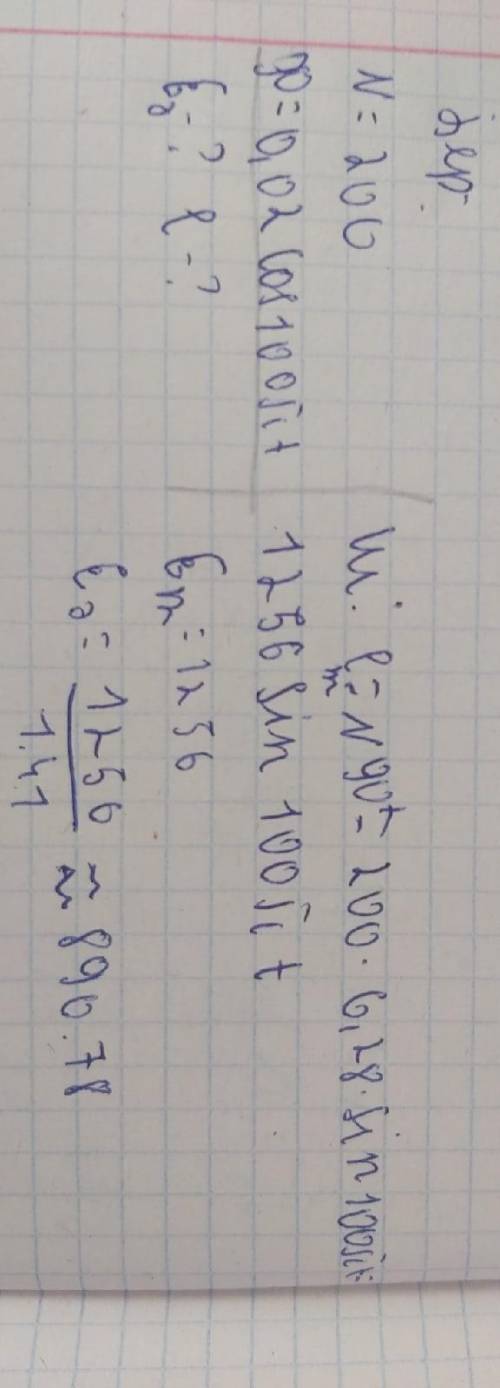 Бер.
N = 200
φ = 0,02 cos 100πt
εд - ? ε - ?
Ш. εm = Nφt = 200 · 6,28 · sin 100πt
1256 sin 100πt
εm = 1256
εд = 1256 / 1.41 ≈ 890.78